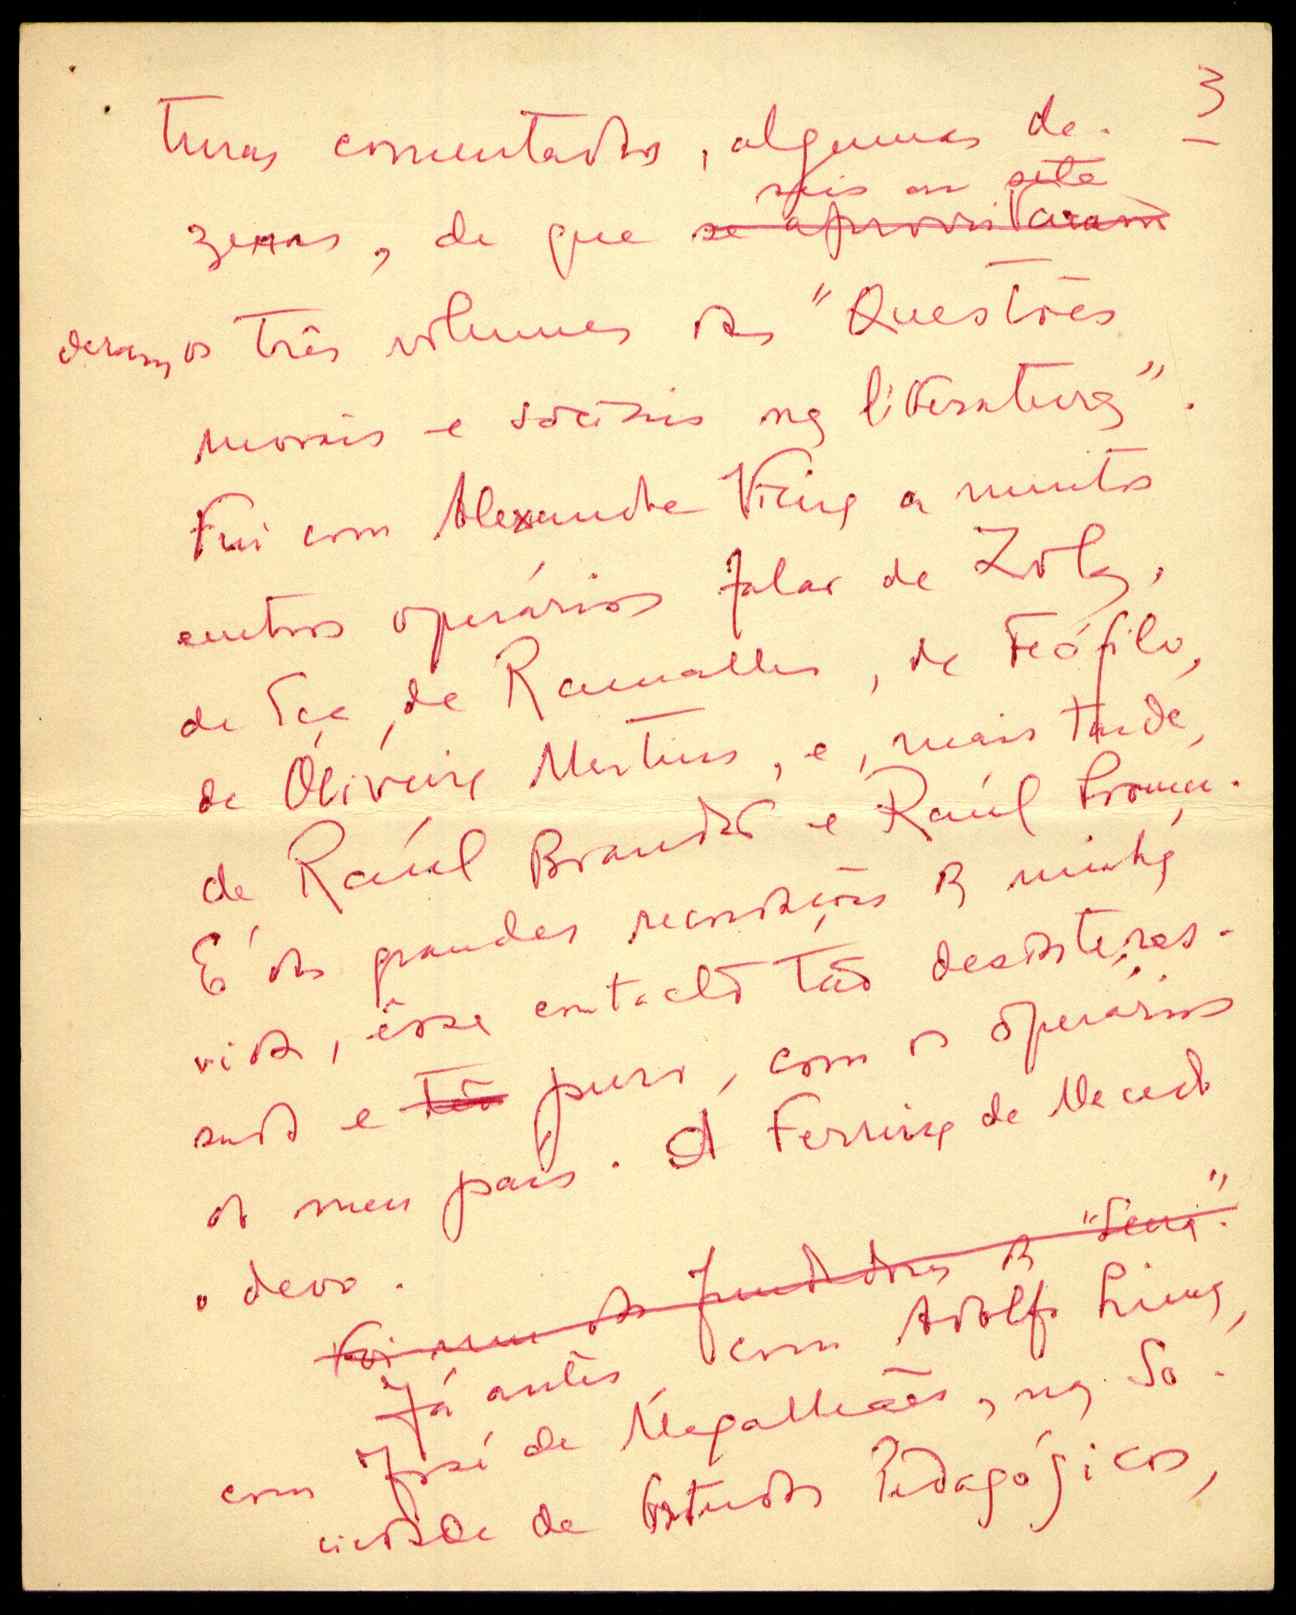 3
turas comentadas, algumas de-
seis ou sete
zenas, de que se aproveitaram
deram, os três volumes das "Questões
morais e sociais na literatura".
Fui com Alexandre Vieira a muitos
centros operários falar de Zola,
de Eça, de Ramalho, de Teófilo,
de Oliveira Martins, e, mais tarde,
de Raúl Brandão e Raúl Proença.
É das grandes recordações da minha
vida, êsse contacto tão desinteres-
sado e tão puro, com os operários
do meu país. A Ferreira de Macedo
o devo.
Foi um dos fundadores da "Seara".
Já antes, com Adolfo Lima,
com José de Magalhães, na So-
ciedade de Estudos Pedagógicos,